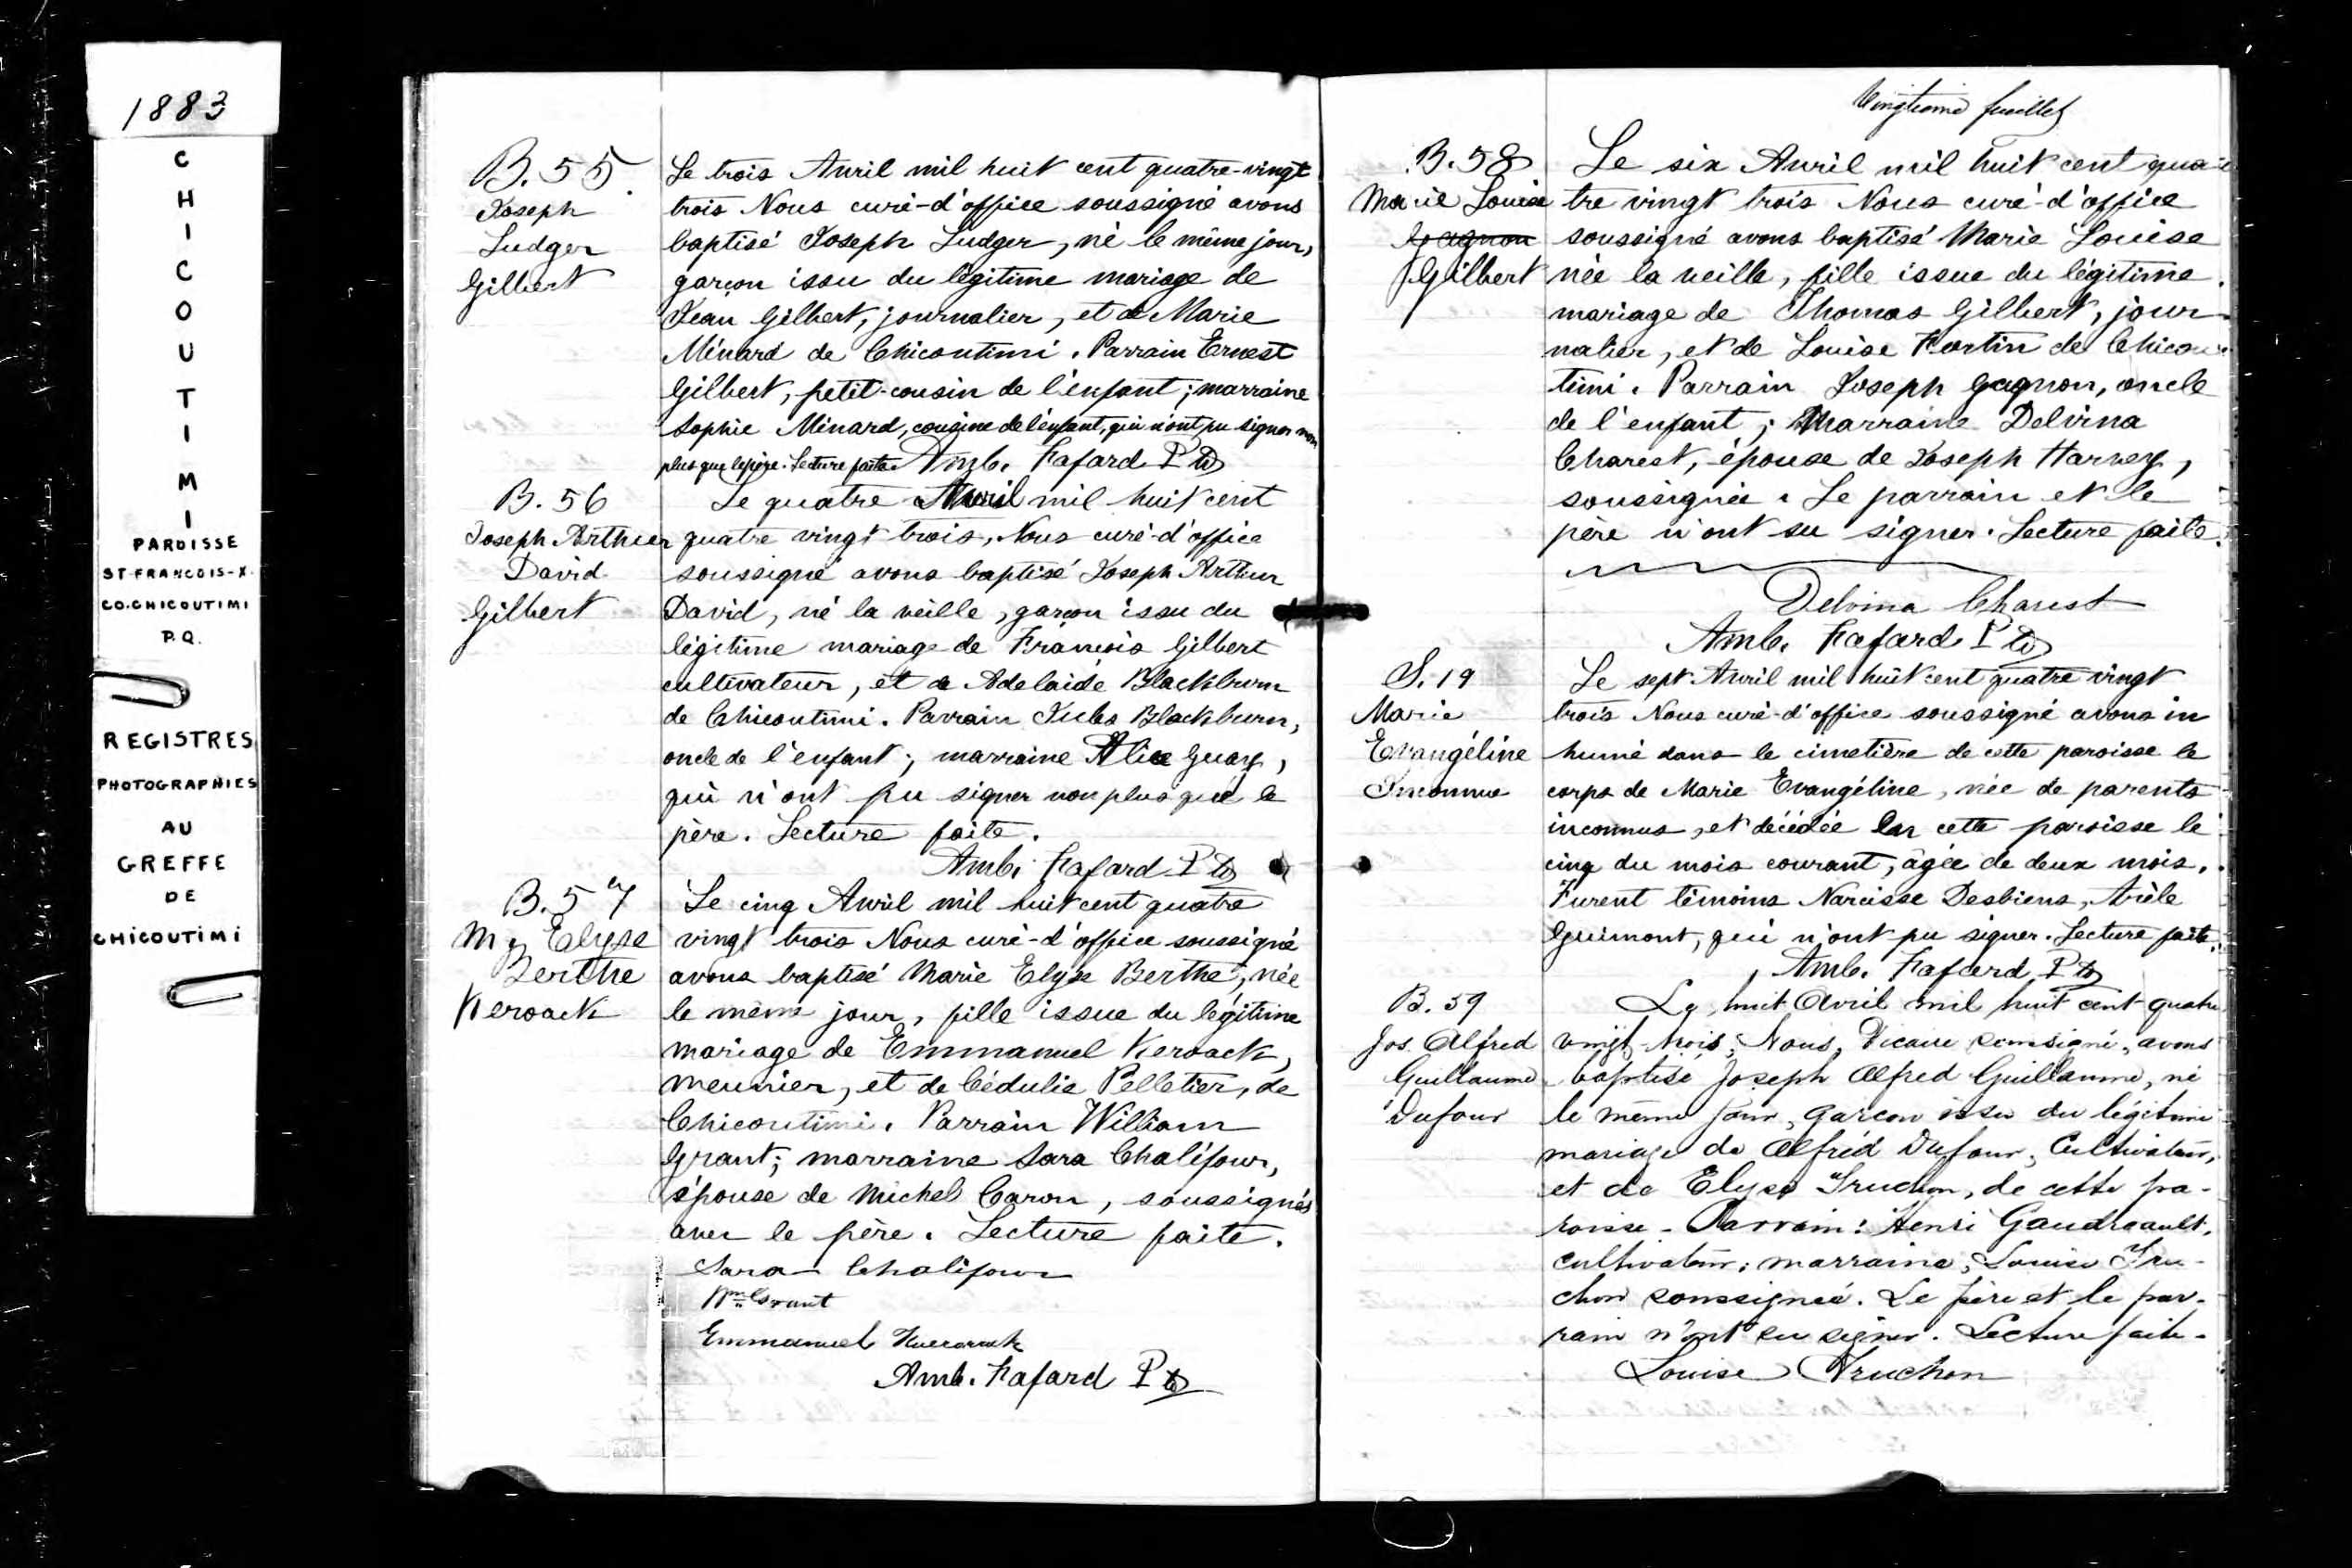 1883
CHICOUTIMI
PAROISSE
ST-FRANCOIS-X.
CO. CHICOUTIMI
P.Q.
REGISTRES
PHOTOGRAPHIES
AU
GREFFE
DE
CHICOUTIMI
B. 55.
Joseph
Ludger
Gilbert
Le trois Avril mil huit cent quatre-vingt
trois Nous curé-d'office soussigné avons
baptisé Joseph Ludger, né le même jour,
garçon issu du légitime mariage de
Jean Gilbert, journalier, et de Marie
Ménard de Chicoutimi. Parrain Ernest
Gilbert, petit-cousin de l'enfant; marraine
Sophie Ménard, cousine de l'enfant, qui n'ont pu signer non
plus que le père. Lecture faite. Amb. Fafard Ptre
B. 56
Joseph Arthur
David
Gilbert
Le quatre Avril mil huit cent
quatre vingt trois, Nous curé-d'office
soussigné avons baptisé Joseph Arthur
David, né la veille, garçon issu du
légitime mariage de François Gilbert
cultivateur, et de Adelaïde Blackburn
de Chicoutimi. Parrain Jules Blackburn,
oncle de l'enfant; marraine Alice Guay,
qui n'ont pu signer non plus que le
père. Lecture faite.
Amb. Fafard Ptre
B. 57
M. Elyse
Berthe
Keroack
Le cinq Avril mil huit cent quatre
vingt trois Nous curé-d'office soussigné
avons baptisé Marie Elyse Berthe, née
le même jour, fille issue du légitime
mariage de Emmanuel Keroack,
meunier, et de Cédulie Pelletier, de
Chicoutimi. Parrain William
Grant; marraine Sara Chalifour,
épouse de Michel Caron, soussignés
avec le père. Lecture faite.
Sara Chalifour
Wm Grant
Emmanuel
Amb. Fafard Ptre
Vingtième feuillet
B. 58
Marie Louise
Gagnon
Gilbert
Le six Avril mil huit cent qua-
tre vingt trois Nous curé-d'office
soussigné avons baptisé Marie Louise
née la veille, fille issue du légitime
mariage de Thomas Gilbert, jour-
nalier, et de Louise Fortin de Chicou-
timi. Parrain Joseph Gagnon, oncle
de l'enfant; Marraine Delvina
Charest, épouse de Joseph Harvey,
soussignée. Le parrain et le
père n'ont su signer. Lecture faite.
Delvina Charest
Amb. Fafard Ptre
S. 19
Marie
Evangéline
Inconnue
Le sept Avril mil huit cent quatre vingt
trois Nous curé-d'office soussigné avons in
humé dans le cimetière de cette paroisse le
corps de Marie Evangéline, née de parents
inconnus, et décédée en cette paroisse le
cinq du mois courant, âgée de deux mois.
Furent témoins Narcisse Desbiens,
Guimont, qui n'ont pu signer. Lecture faite.
Amb. Fafard Ptre
B. 59
Jos. Alfred
Guillaume
Dufour
Le huit Avril mil huit cent quatre
vingt-trois, Nous, Vicaire soussigné, avons
baptisé Joseph Alfred Guillaume, né
le même jour, garçon issu du légitime
mariage de Alfred Dufour, Cultivateur,
et de Elyse Truchon, de cette pa-
roisse - Parrain: Henri Gaudreault,
cultivateur; marraine, Louise Tru-
chon soussignée. Le père et le par-
rain n'ont su signer. Lecture faite -
Louise Truchon